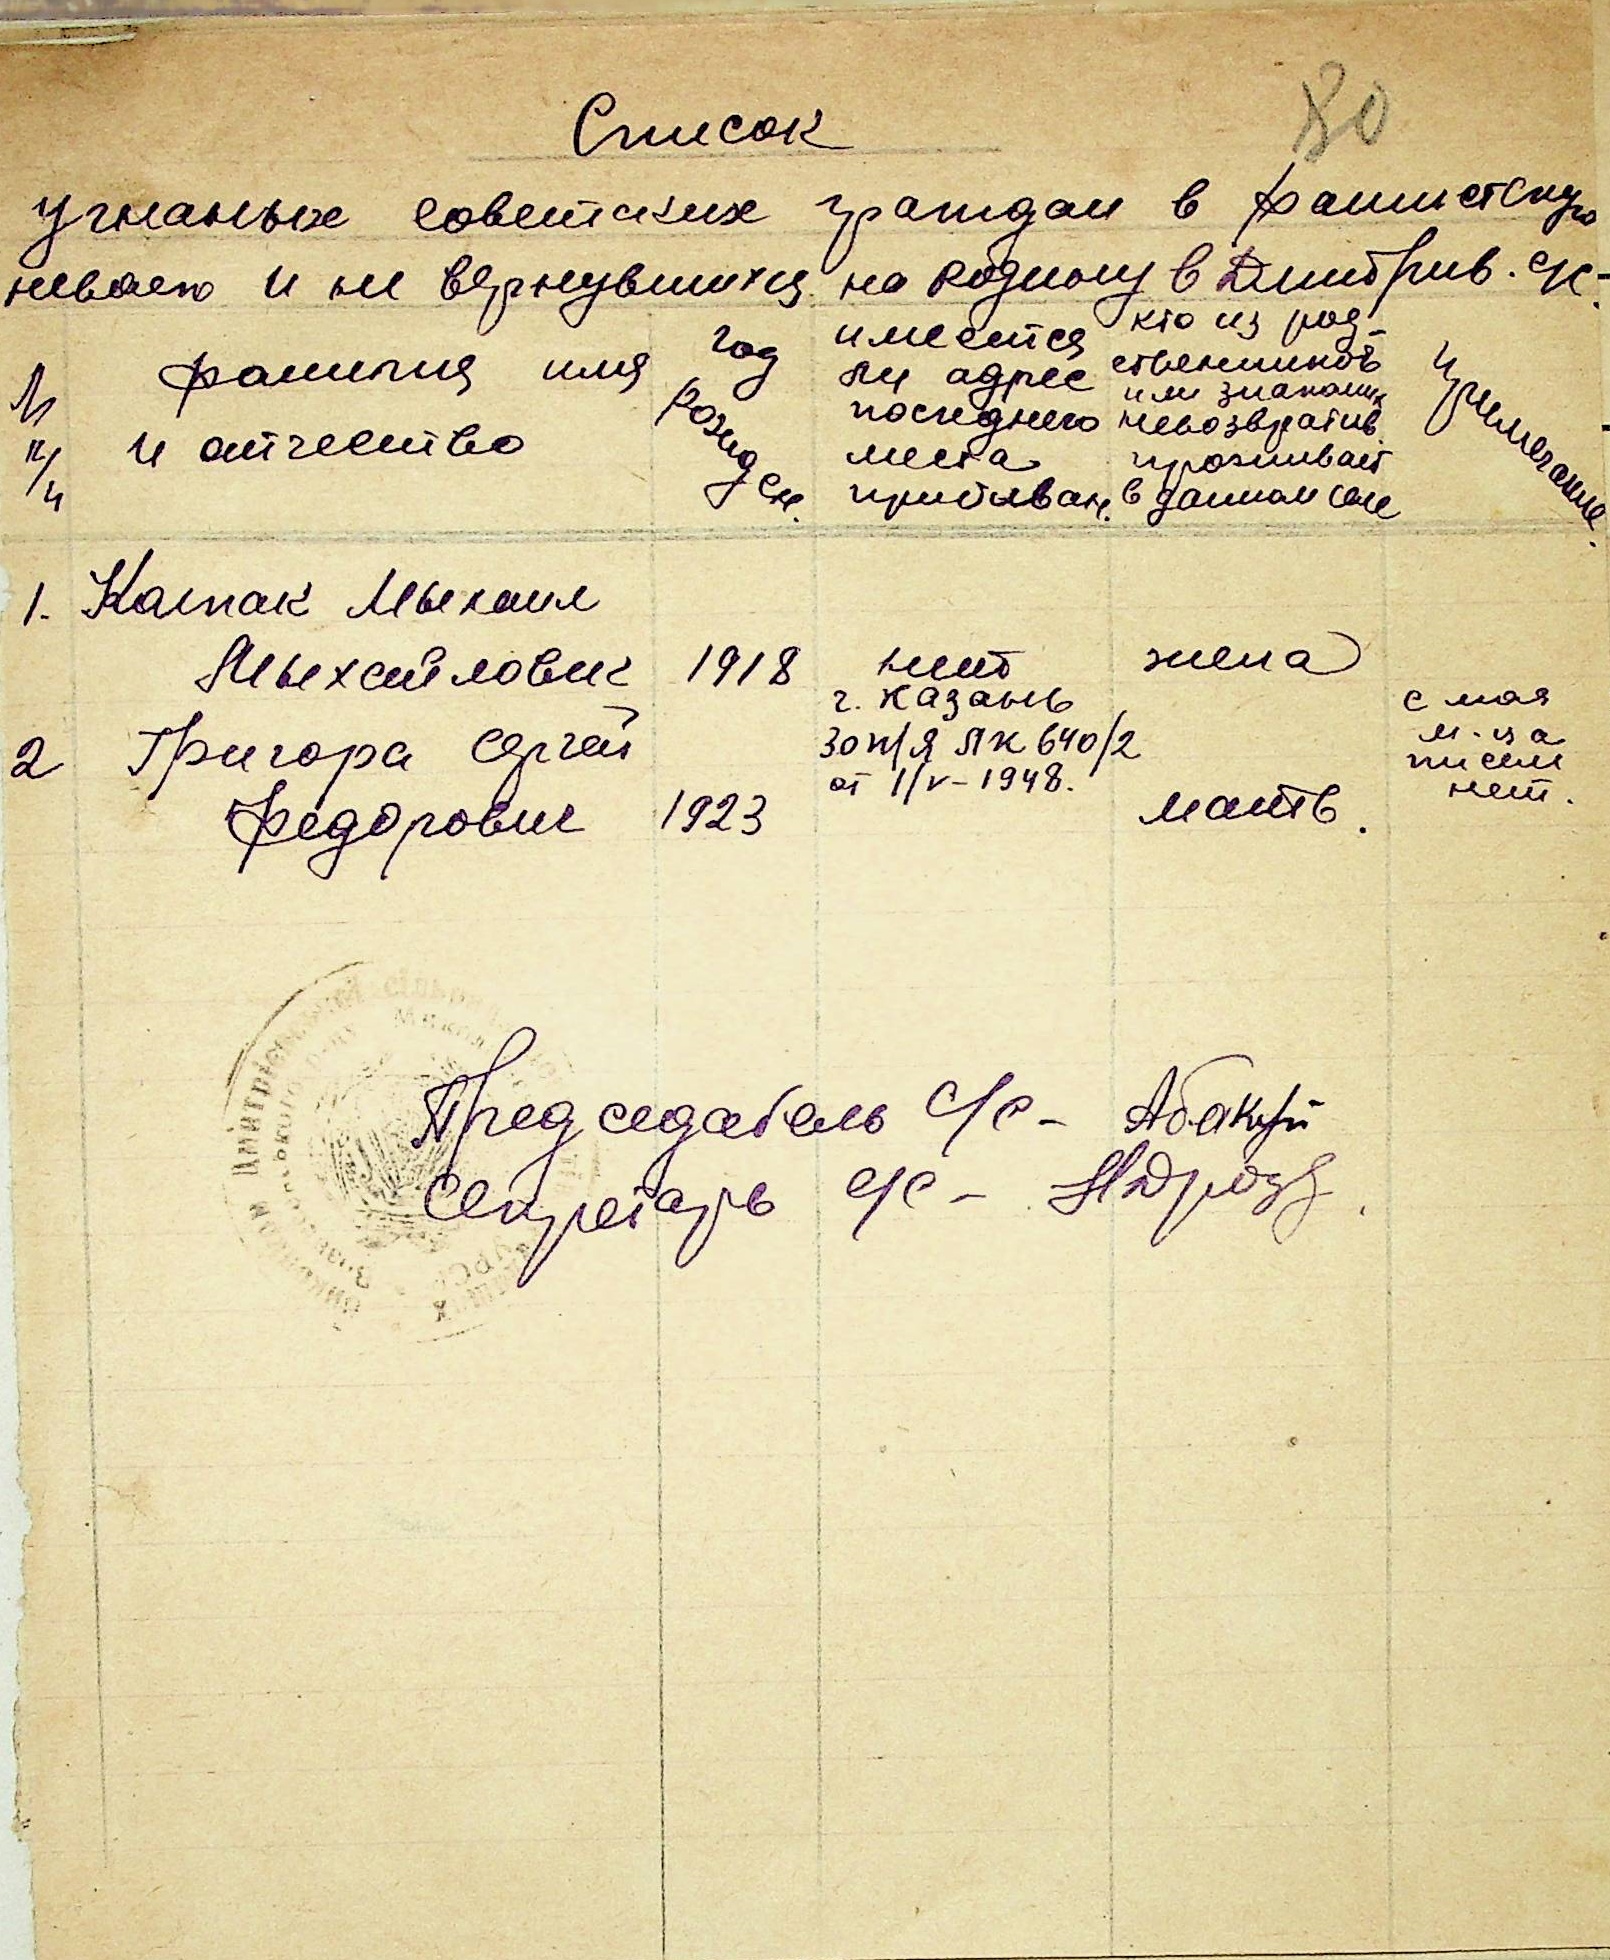 80
Список
угнаных советских граждан в фашистскую
неволю и не вернувшихся на родину в Дмитрив. с/с.
№ п/п
фамилия имя
и отчество
год рожден.
имеется
ли адрес
последнего
места
пребыван.
кто из род-
ственников
или знакомых
невозвратив.
проживает
в данном селе
Примечание.
1. Колпак Мыхаил
Мыхайлович 1918 нет жена
2 Григора Сергей
Федорович 1923
г. Казань
30 п/я ЛК 640/2
от 1/V-1948.
мать.
с мая
м-ца
писем
нет.
Председатель с/с -
Секретарь с/с - НДрозд